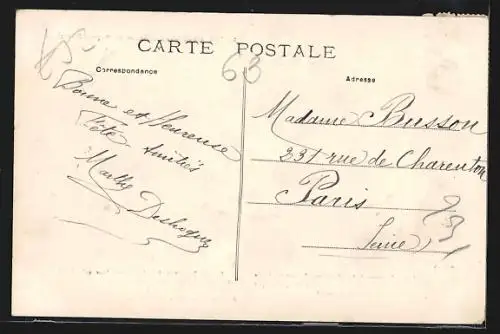 CARTE POSTALE
Correspondance
Adresse
63
Bonne et Heureuse
Fête Amitiés
Marthe
Madame Busson
231 rue de Charenton
Paris
Seine